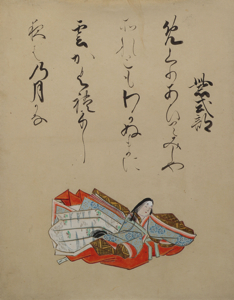 紫式部
めくりあひてみしや
それともわかぬまに
雲かくれにし
夜はの月かな